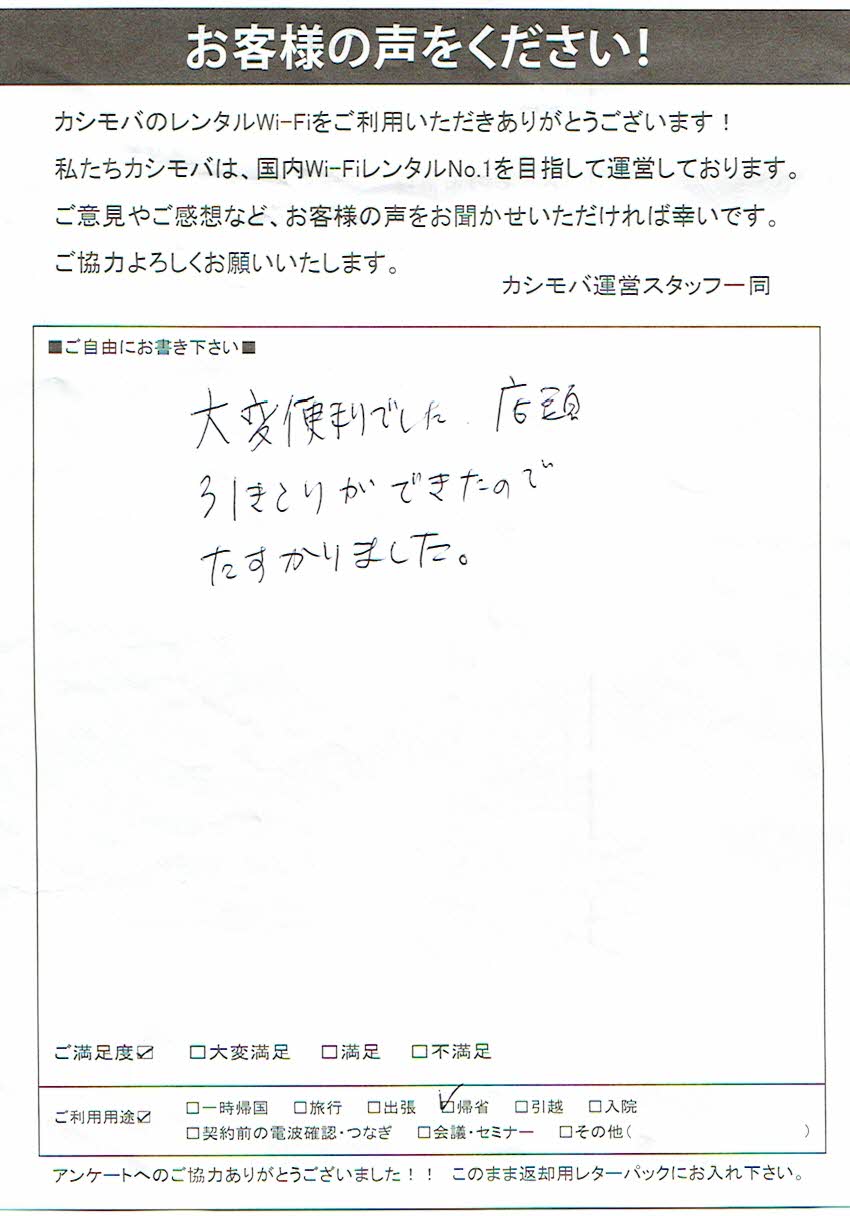 お客様の声をください!
カシモバのレンタルWi-Fiをご利用いただきありがとうございます！
私たちカシモバは、国内Wi-FiレンタルNo.1を目指して運営しております。
ご意見やご感想など、お客様の声をお聞かせいただければ幸いです。
ご協力よろしくお願いいたします。
カシモバ運営スタッフ一同
■ご自由にお書き下さい■
大変便利でした. 店頭
引きとりができたので
たすかりました。
ご満足度☑ □大変満足 □満足 □不満足
ご利用用途☑ □一時帰国 □旅行 □出張 ☑帰省 □引越 □入院
□契約前の電波確認・つなぎ □会議・セミナー □その他( )
アンケートへのご協力ありがとうございました！！ このまま返却用レターパックにお入れ下さい。